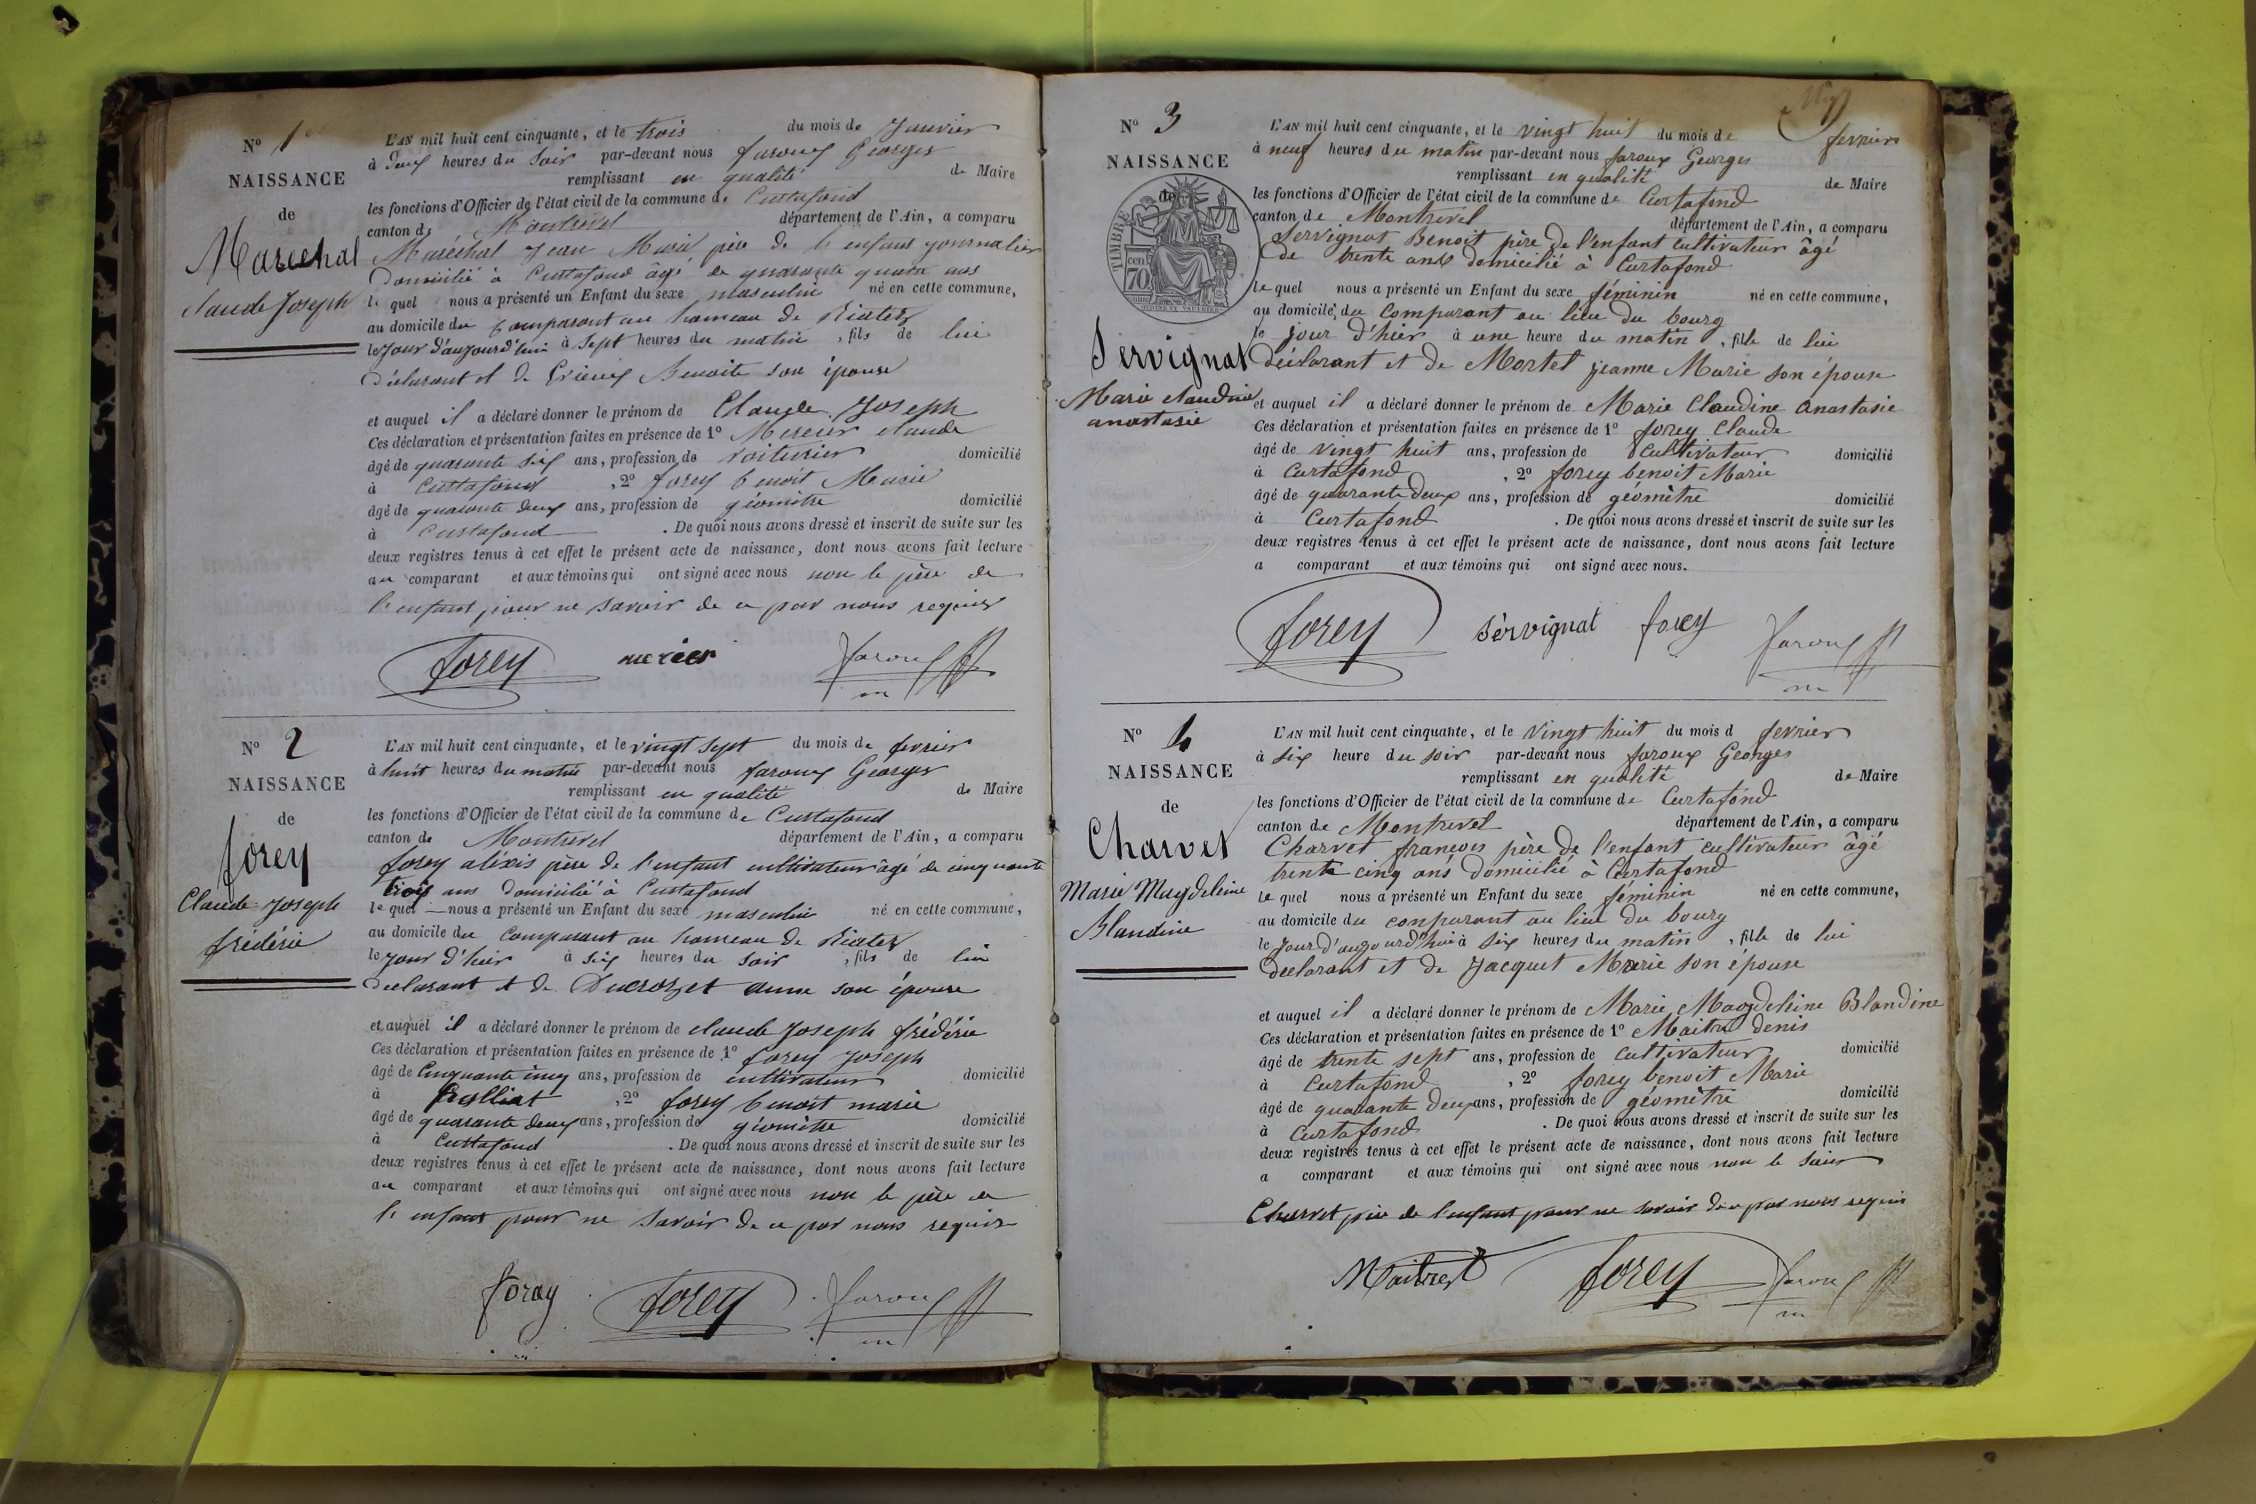 N° 1
NAISSANCE
de
Marechal
Claude Joseph
L'AN mil huit cent cinquante, et le trois du mois de Janvier
à deux heures du soir par-devant nous faroux Georges
remplissant en qualité de Maire
les fonctions d'Officier de l'état civil de la commune de Curtafond
canton de Montrevel département de l'Ain, a comparu
Maréchal Jean Marie père de l'enfant journalier
domicilié à Curtafond âgé de quarante quatre ans
le quel nous a présenté un Enfant du sexe masculin né en cette commune,
au domicile du comparant au hameau de
le jour d'aujourd'hui à sept heures du matin, fils de lui
déclarant et de Benoite son épouse
et auquel il a déclaré donner le prénom de Claude Joseph
Ces déclaration et présentation faites en présence de 1° Mercier claude
âgé de quarante six ans, profession de voiturier domicilié
à Curtafond, 2° forey benoit Marie
âgé de quarante deux ans, profession de géomètre domicilié
à Curtafond. De quoi nous avons dressé et inscrit de suite sur les
deux registres tenus à cet effet le présent acte de naissance, dont nous avons fait lecture
au comparant et aux témoins qui ont signé avec nous non le père de
l'enfant pour ne savoir de ce par nous requis
forey mercier faroux
m
N° 2
NAISSANCE
de
forey
Claude Joseph
frédéric
L'AN mil huit cent cinquante, et le vingt sept du mois de fevrier
à huit heures du matin par-devant nous faroux Georges
remplissant en qualité de Maire
les fonctions d'Officier de l'état civil de la commune de Curtafond
canton de Montrevel département de l'Ain, a comparu
forey alexis père de l'enfant cultivateur âgé de cinquante
trois ans domicilié à Curtafond
le quel nous a présenté un Enfant du sexe masculin né en cette commune,
au domicile du comparant au hameau de
le jour d'hier à six heures du soir, fils de lui
declarant et de Ducrozet anne son épouse
et auquel il a déclaré donner le prénom de claude Joseph frédéric
Ces déclaration et présentation faites en présence de 1° forey Joseph
âgé de Cinquante cinq ans, profession de cultivateur domicilié
à Polliat, 2° forey benoit marie
âgé de quarante deux ans, profession de géomètre domicilié
à Curtafond. De quoi nous avons dressé et inscrit de suite sur les
deux registres tenus à cet effet le présent acte de naissance, dont nous avons fait lecture
au comparant et aux témoins qui ont signé avec nous non le père de
l'enfant pour ne savoir de ce par nous requis
foray forey faroux
m
N° 3
NAISSANCE
de
TIMBRE
70 cen
Servignat
Marie claudine
anastasie
L'AN mil huit cent cinquante, et le vingt huit du mois de fevrier
à neuf heures du matin par-devant nous faroux Georges
remplissant en qualité de Maire
les fonctions d'Officier de l'état civil de la commune de Curtafond
canton de Montrevel département de l'Ain, a comparu
Servignat Benoit père de l'enfant cultivateur âgé
de trente ans domicilié à Curtafond
le quel nous a présenté un Enfant du sexe féminin né en cette commune,
au domicile du comparant au lieu du bourg
le jour d'hier à une heure du matin, fille de lui
déclarant et de Mortel jeanne Marie son épouse
et auquel il a déclaré donner le prénom de Marie Claudine anastasie
Ces déclaration et présentation faites en présence de 1° forey Claude
âgé de vingt huit ans, profession de Cultivateur domicilié
à Curtafond, 2° forey benoit Marie
âgé de quarante deux ans, profession de géomètre domicilié
à Curtafond. De quoi nous avons dressé et inscrit de suite sur les
deux registres tenus à cet effet le présent acte de naissance, dont nous avons fait lecture
a comparant et aux témoins qui ont signé avec nous.
forey Sèrvignat forey faroux
m
N° 4
NAISSANCE
de
Charvet
Marie Magdeleine
Blandine
L'AN mil huit cent cinquante, et le vingt huit du mois d fevrier
à six heure du soir par-devant nous faroux Georges
remplissant en qualité de Maire
les fonctions d'Officier de l'état civil de la commune de Curtafond
canton de Montrevel département de l'Ain, a comparu
Charvet françois père de l'enfant cultivateur âgé
trente cinq ans domicilié à Curtafond
le quel nous a présenté un Enfant du sexe féminin né en cette commune,
au domicile du comparant au lieu du bourg
le jour d'aujourd'hui à six heures du matin, fille de lui
declarant et de Jacquet Marie son épouse
et auquel il a déclaré donner le prénom de Marie Magdeleine Blandine
Ces déclaration et présentation faites en présence de 1° Maitre denis
âgé de trente sept ans, profession de cultivateur domicilié
à Curtafond, 2° forey benoit Marie
âgé de quarante deux ans, profession de géomètre domicilié
à Curtafond. De quoi nous avons dressé et inscrit de suite sur les
deux registres tenus à cet effet le présent acte de naissance, dont nous avons fait lecture
a comparant et aux témoins qui ont signé avec nous non le sieur
Charvet père de l'enfant pour ne savoir de ce par nous requis
forey faroux
m